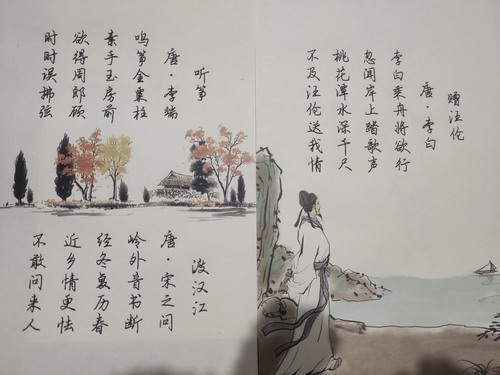 赠汪伦
唐·李白
李白乘舟将欲行
忽闻岸上踏歌声
桃花潭水深千尺
不及汪伦送我情
听筝
唐·李端
鸣筝金粟柱
素手玉房前
欲得周郎顾
时时误拂弦
渡汉江
唐·宋之问
岭外音书断
经冬复历春
近乡情更怯
不敢问来人